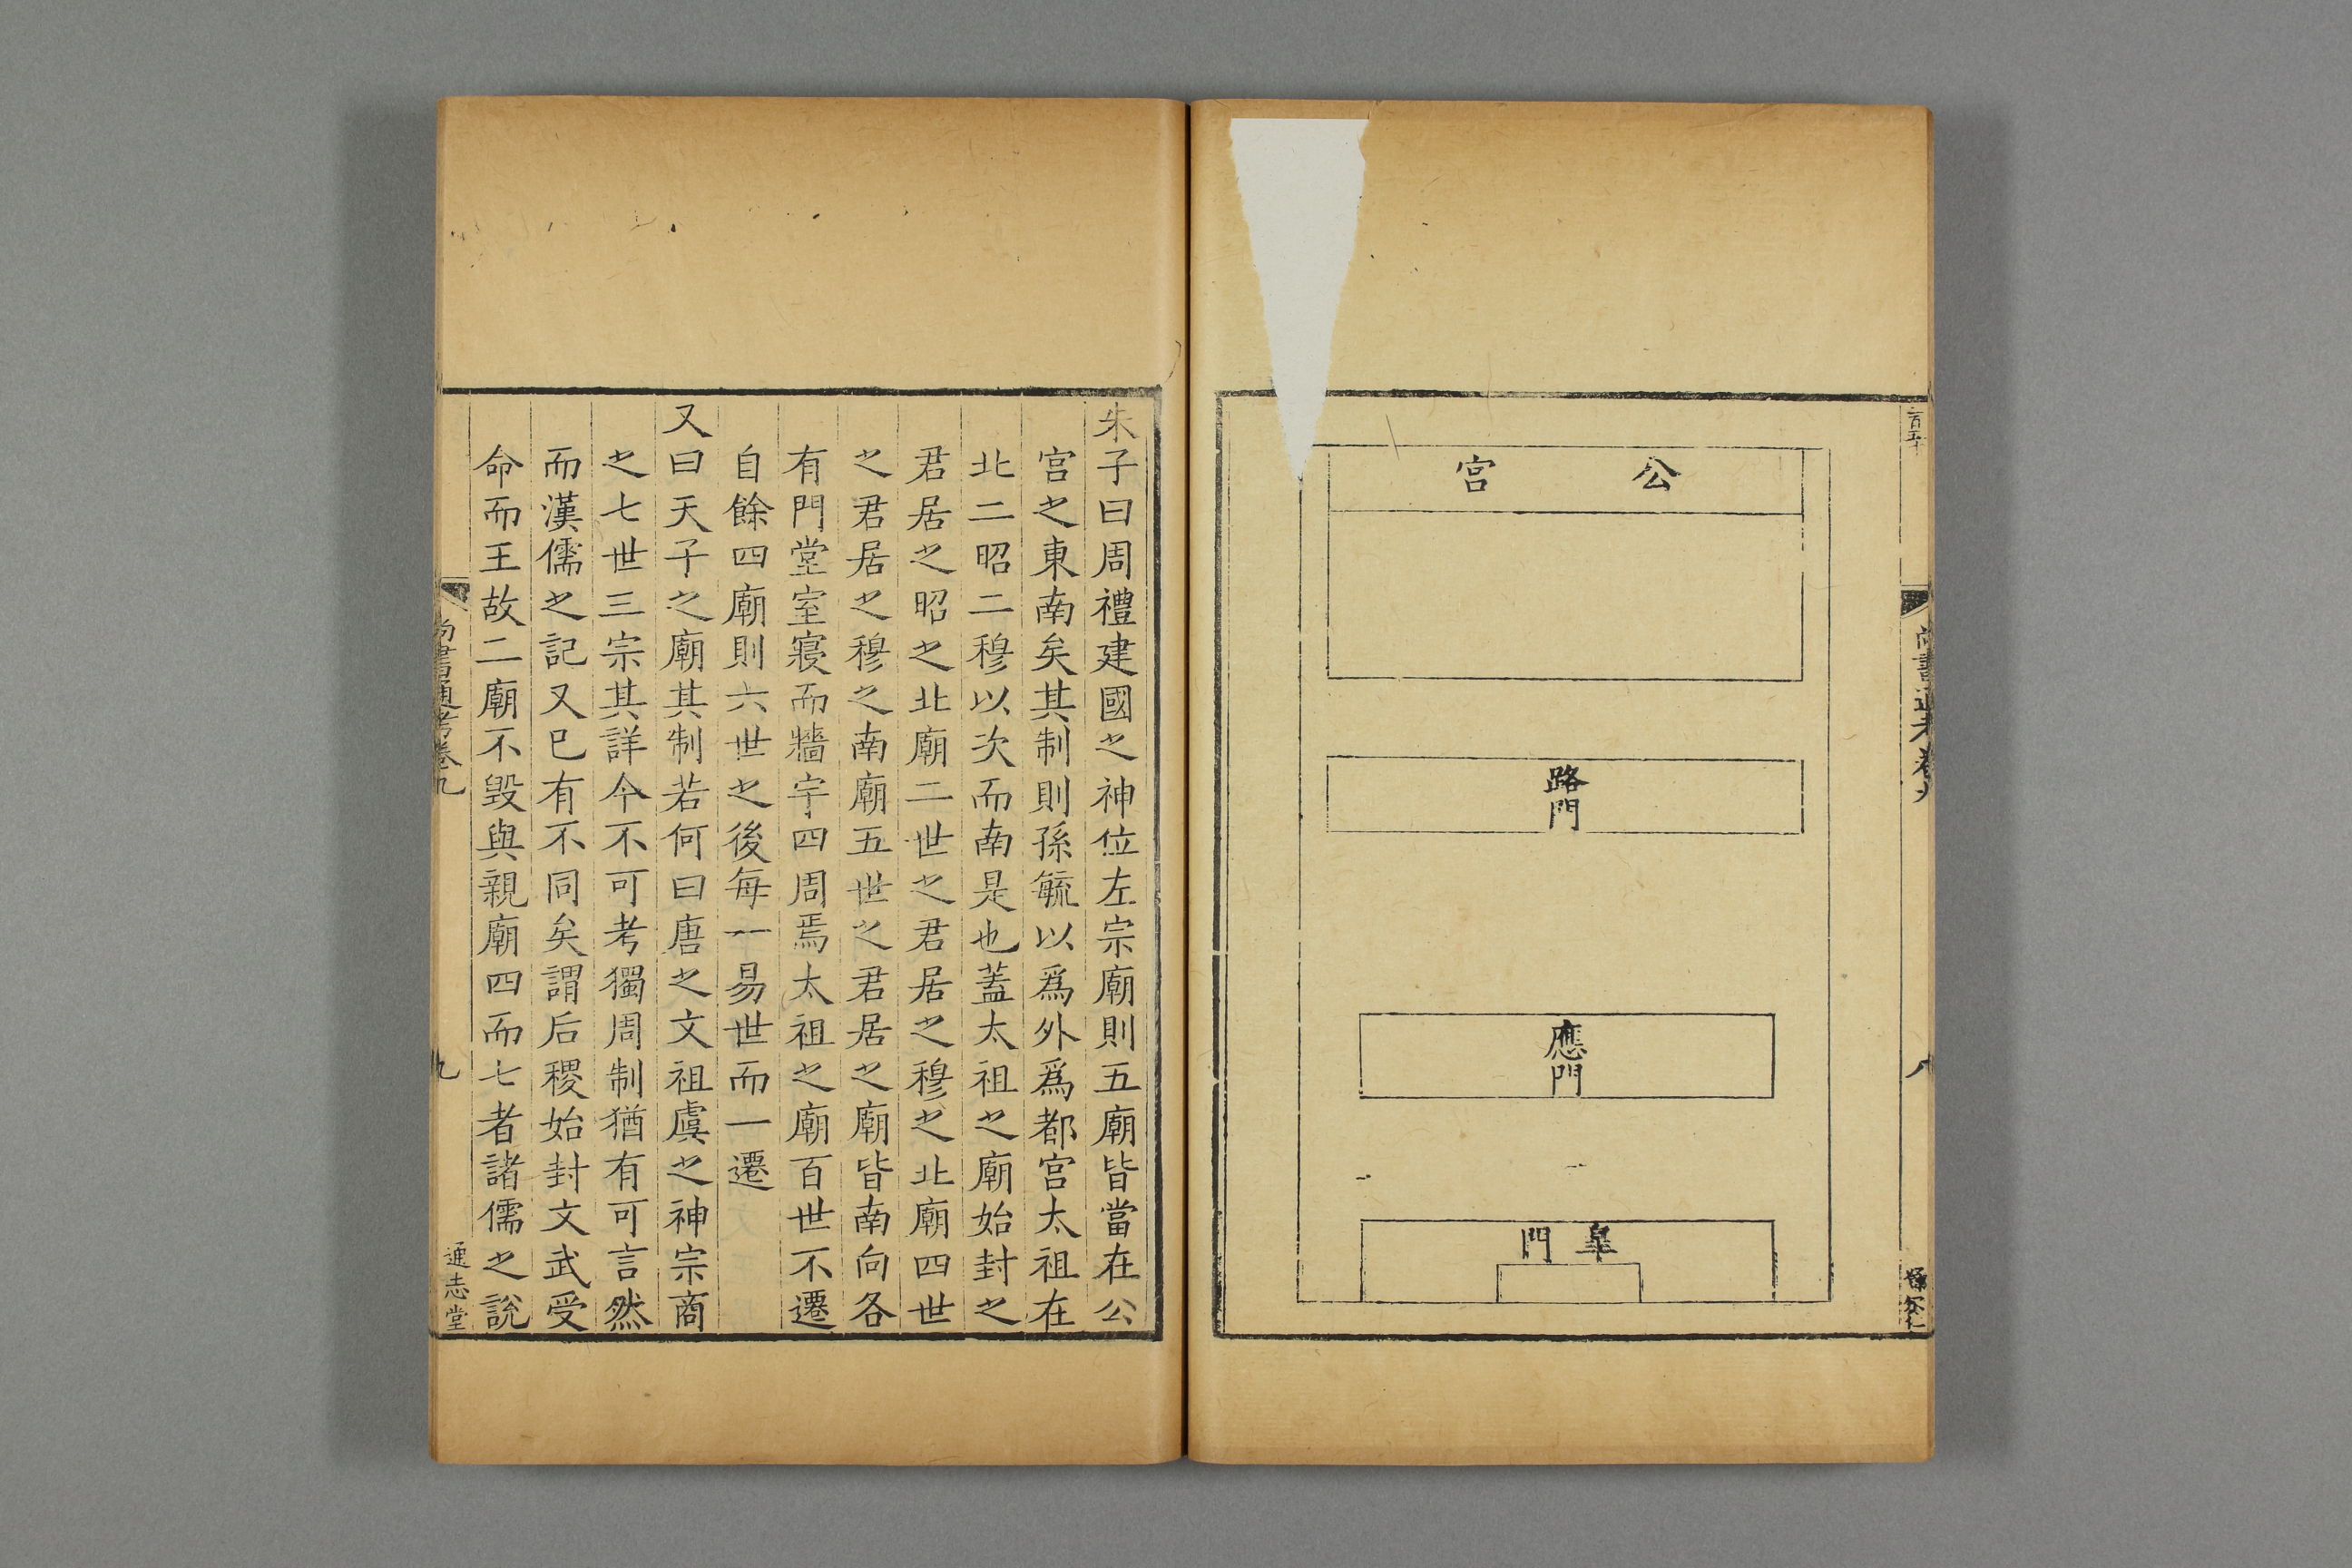 公宮
路門
應門
皐門
尚書通考卷九
八
朱子曰周禮建國之神位左宗廟則五廟皆當在公
宮之東南矣其制則孫毓以爲外爲都宮太祖在
北二昭二穆以次而南是也蓋太祖之廟始封之
君居之昭之北廟二世之君居之穆之北廟四世
之君居之穆之南廟五世之君居之廟皆南向各
有門堂室寢而牆宇四周焉太祖之廟百世不遷
自餘四廟則六世之後每一易世而一遷
又曰天子之廟其制若何曰唐之文祖虞之神宗商
之七世三宗其詳今不可考獨周制猶有可言然
而漢儒之記又已有不同矣謂后稷始封文武受
命而王故二廟不毀與親廟四而七者諸儒之說
尚書通考卷九
九
通志堂